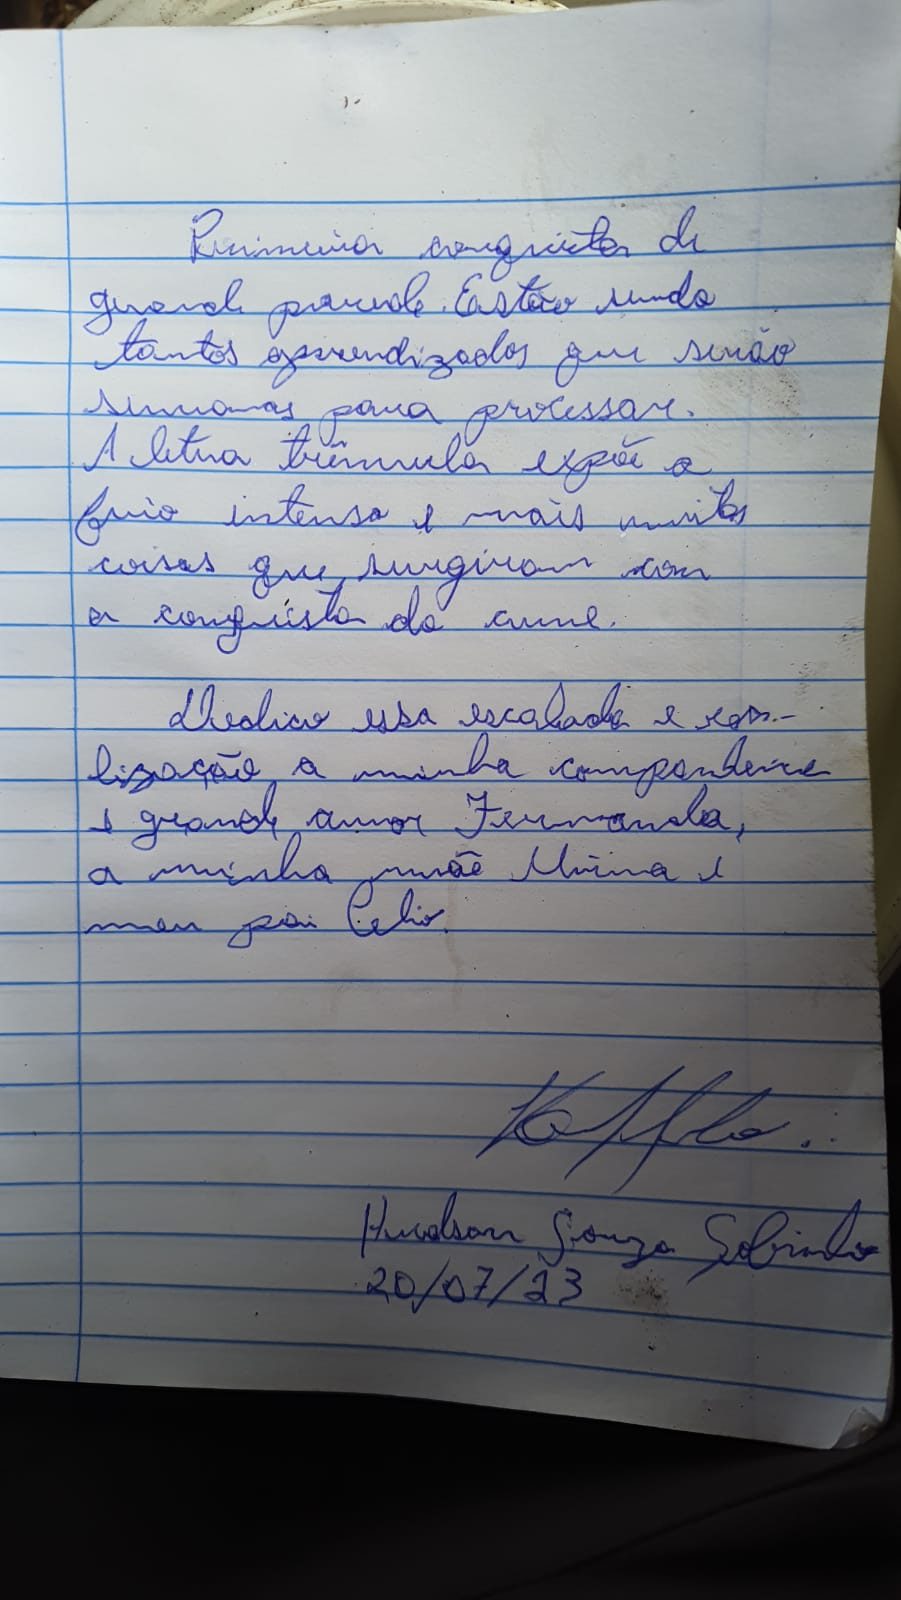 Primeira conquista de
grande parede. Estão sendo
tantos aprendizados que serão
semanas para processar.
A letra trêmula expõe o
frio intenso e mais muitas
coisas que surgiram com
a conquista do cume.
Dedico essa escalada e rea-
lização a minha companheira
e grande amor Fernanda,
a minha mãe e
meu pai Celio.
Hudson Souza Sobrinho
20/07/23